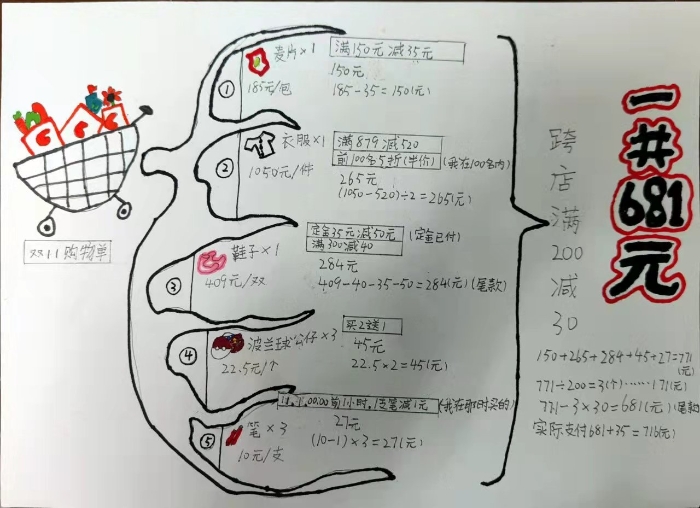 双11购物单
①
麦片×1
185元/包
满150元减35元
150元
185-35=150(元)
②
衣服×1
1050元/件
满879减520
前100名5折(半价)(我在100名内)
265元
(1050-520)÷2=265(元)
③
鞋子×1
409元/双
定金35元减50元(定金已付)
满300减40
284元
409-40-35-50=284(元)(尾款)
④
波兰球公仔×3
22.5元/个
买2送1
45元
22.5×2=45(元)
⑤
笔×3
10元/支
00:00前1小时,1支笔减1元(我在那时买的)
27元
(10-1)×3=27(元)
跨店满200减30
一共681元
150+265+284+45+27=771(元)
771÷200=3(个)……171(元)
771-3×30=681(元)(尾款)
实际支付681+35=716(元)